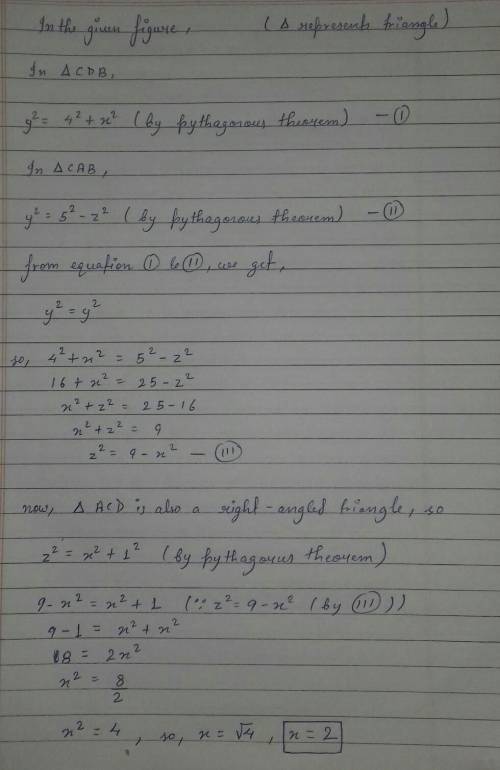 In the given figure, (Δ represents triangle)
In ΔCDB,
y² = 4² + x² (by pythagorous theorem) - Ⓘ
In ΔCAB,
y² = 5² - z² (by pythagorous theorem) - Ⅱ
from equation Ⓘ & Ⅱ, we get,
y² = y²
so, 4² + x² = 5² - z²
16 + x² = 25 - z²
x² + z² = 25 - 16
x² + z² = 9
z² = 9 - x² - Ⅲ
now, Δ ACD is also a right-angled triangle, so
z² = x² + 1² (by pythagorus theorem)
9 - x² = x² + 1 (∵ z² = 9 - x² (by Ⅲ))
9 - 1 = x² + x²
8 = 2x²
x² = 8/2
x² = 4, so, x = √4, x = 2